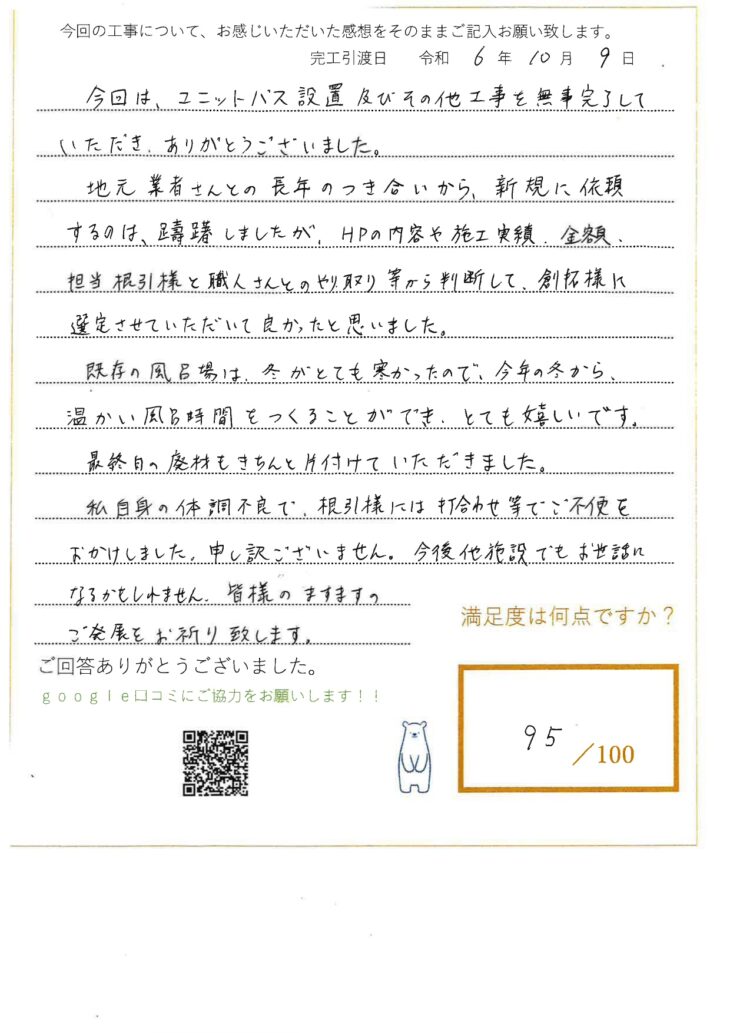 今回の工事について、お感じいただいた感想をそのままご記入お願い致します。
完工引渡日　令和 6 年 10 月 9 日
今回は、ユニットバス設置及びその他工事を無事完了して
いただき、ありがとうございました。
地元業者さんとの長年のつき合いから、新規に依頼
するのは、躊躇しましたが、HPの内容や施工実績、金額、
担当根引様と職人さんとのやり取り等から判断して、創拓様に
選定させていただいて良かったと思いました。
既存の風呂場は、冬がとても寒かったので、今年の冬から、
温かい風呂時間をつくることができ、とても嬉しいです。
最終日の廃材もきちんと片付けていただきました。
私自身の体調不良で、根引様には打合わせ等でご不便を
おかけしました。申し訳ございません。今後他施設でもお世話に
なるかもしれません。皆様のますますの
ご発展をお祈り致します。
満足度は何点ですか？
95／100
ご回答ありがとうございました。
ｇｏｏｇｌｅ口コミにご協力をお願いします！！